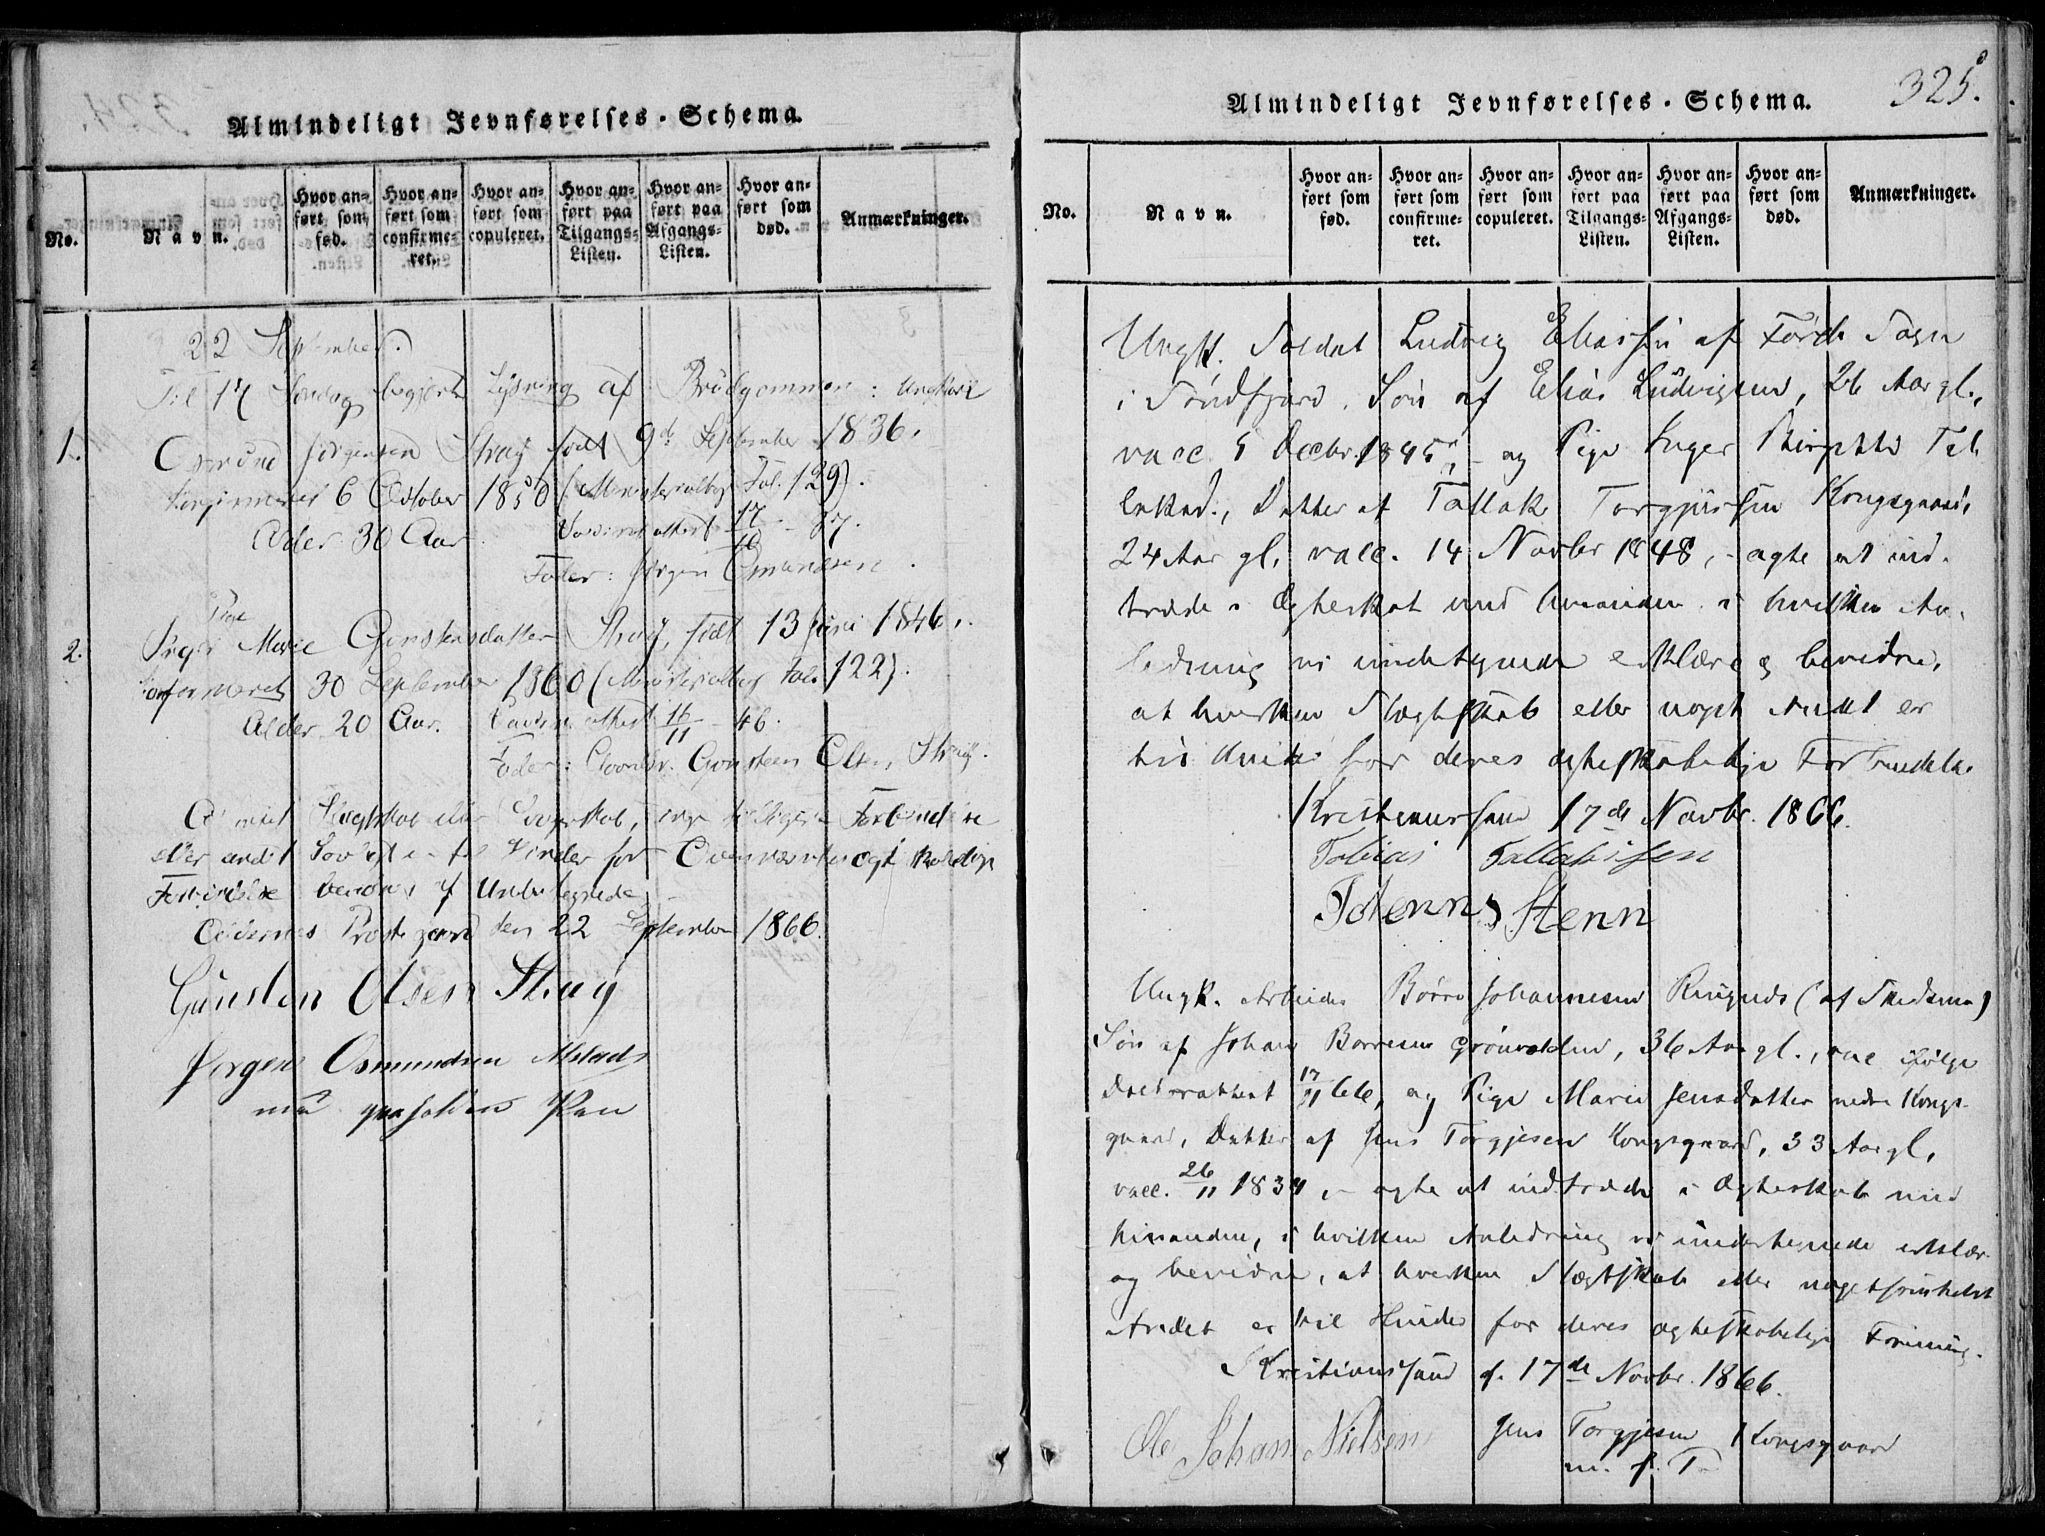 Almindeligt Jevnførelses-Schema.
No.
Navn.
Hvor anført som fød.
Hvor anført som confirmeret.
Hvor anført som copuleret.
Hvor anført paa Tilgangs-Listen.
Hvor anført paa Afgangs-Listen.
Hvor anført som død.
Anmærkninger.
22 September.
Til 17 Søndag begjert Lysning af Brudgommen: Ungkarl
1. Osmund Jørgensen Straj født 9de September 1836.
Konfirmeret 6 October 1850 (Ministerialbog Fol. 129).
Alder 30 Aar. Vaccineattest 17/10 - 37.
Fader: Jørgen Osmundsen.
Pige
2. Inger Marie Gunstensdatter Straj, født 13 Juni 1846.
Konfirmeret 30 September 1860 (Ministerialbog Fol. 122).
Alder 20 Aar. Vaccin. attest 16/11 - 46.
Fader: Gaardbr. Gunsteen Olsen Straj.
At intet Slegtskab eller Svogerskab, Forbindelse
eller andet er til Hinder for Ovennævntes ægteskabelige
Forbindelse bevidnes af Undertegnede
Oddernes Prostegaard den 22 September 1866.
Gunsten Olsen Straij
Jørgen Osmundsen
med paaholden Pen
325.
Almindeligt Jevnførelses-Schema.
No.
Navn.
Hvor anført som fød.
Hvor anført som confirmeret.
Hvor anført som copuleret.
Hvor anført paa Tilgangs-Listen.
Hvor anført paa Afgangs-Listen.
Hvor anført som død.
Anmærkninger.
Ungk. Soldat Ludvig Eliassen af Førde Sogn
i Søndfjord, Søn af Elias Ludvigsen, 26 Aar gl.,
vacc. 5 Decbr. 1845, - og Pige Inger Birgitte Tal-
laksd., Datter af Tallak Torgjussen Kongsgaard,
24 Aar gl. vacc. 14 Novbr 1848, - agte at ind-
træde i Ægteskab med hinanden, i hvilken An-
ledning vi undertegnede erklære og bevidne,
at hverken Slægtskab eller noget Andet er
til Hinder for deres ægteskabelige Forbindelse.
Kristianssand 17de Novbr. 1866.
Tobias Tallaksen
Tønnes Stenn
Ungk. Arbeider Børre Johannesen Ringnes (af Skedsmo)
Søn af Johan Borresen Grønvolden, 36 Aar gl., vac ifølge
Doctorattest 17/11 66, og Pige Marie Jensdatter nedre Kongs-
gaard, Datter af Jens Torgjesen Kongsgaard, 33 Aar gl,
vacc. 26/11 1834, - agte at indtræde i Ægteskab med
hinanden, i hvilken Anledning vi undertegnede erklære
og bevidne, at hverken Slægtskab eller nogetsomhelst
Andet er til Hinder for deres ægteskabelige Forening.
Kristianssand d. 17de Novbr. 1866.
Ole Johan Nielsen Jens Torgjesen Kongsgaard
m. p. P.